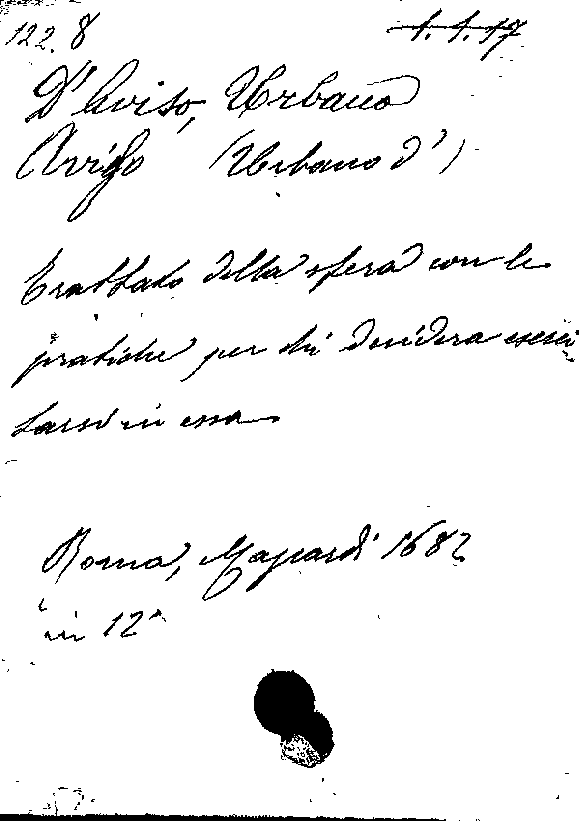 122.8 1.1.17
D'Aviso, Urbano
Aviso (Urbano d')
Trattato della sfera con le
pratiche per chi desidera eserci
tarsi in essa
Roma, Mascardi 1682
in 12°